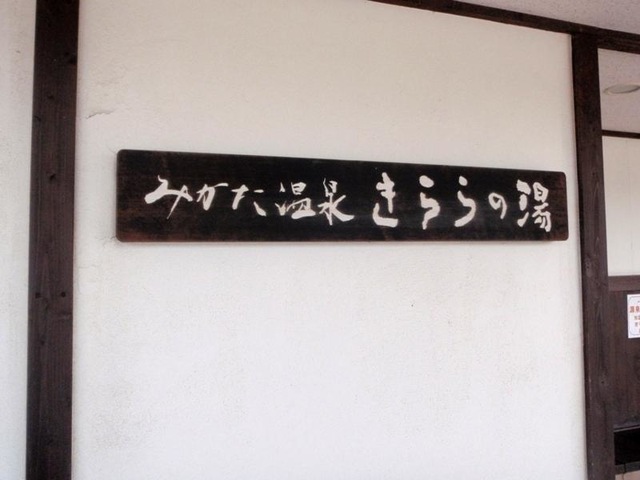 みかた温泉 きららの湯